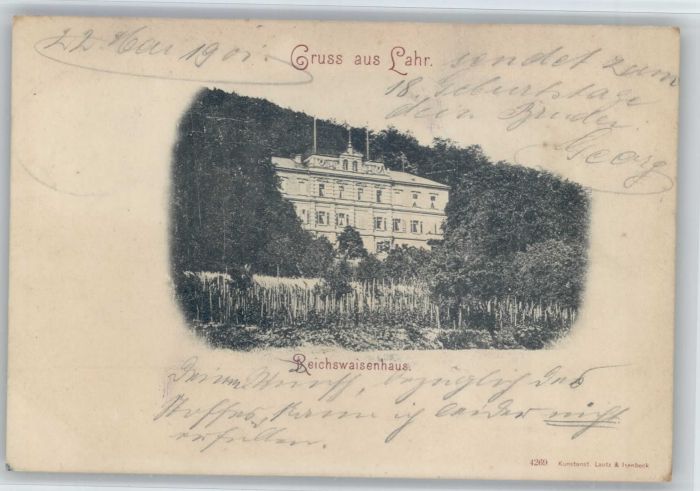 22 Mai 1901.
Gruss aus Lahr.
sendet zum
18. Geburtstage
dein Bruder
Georg
Reichswaisenhaus.
Deinen Wunsch, bezüglich des
Stoffes, kann ich leider nicht
erfüllen.
4269 Kunstanst. Lautz & Isenbeck